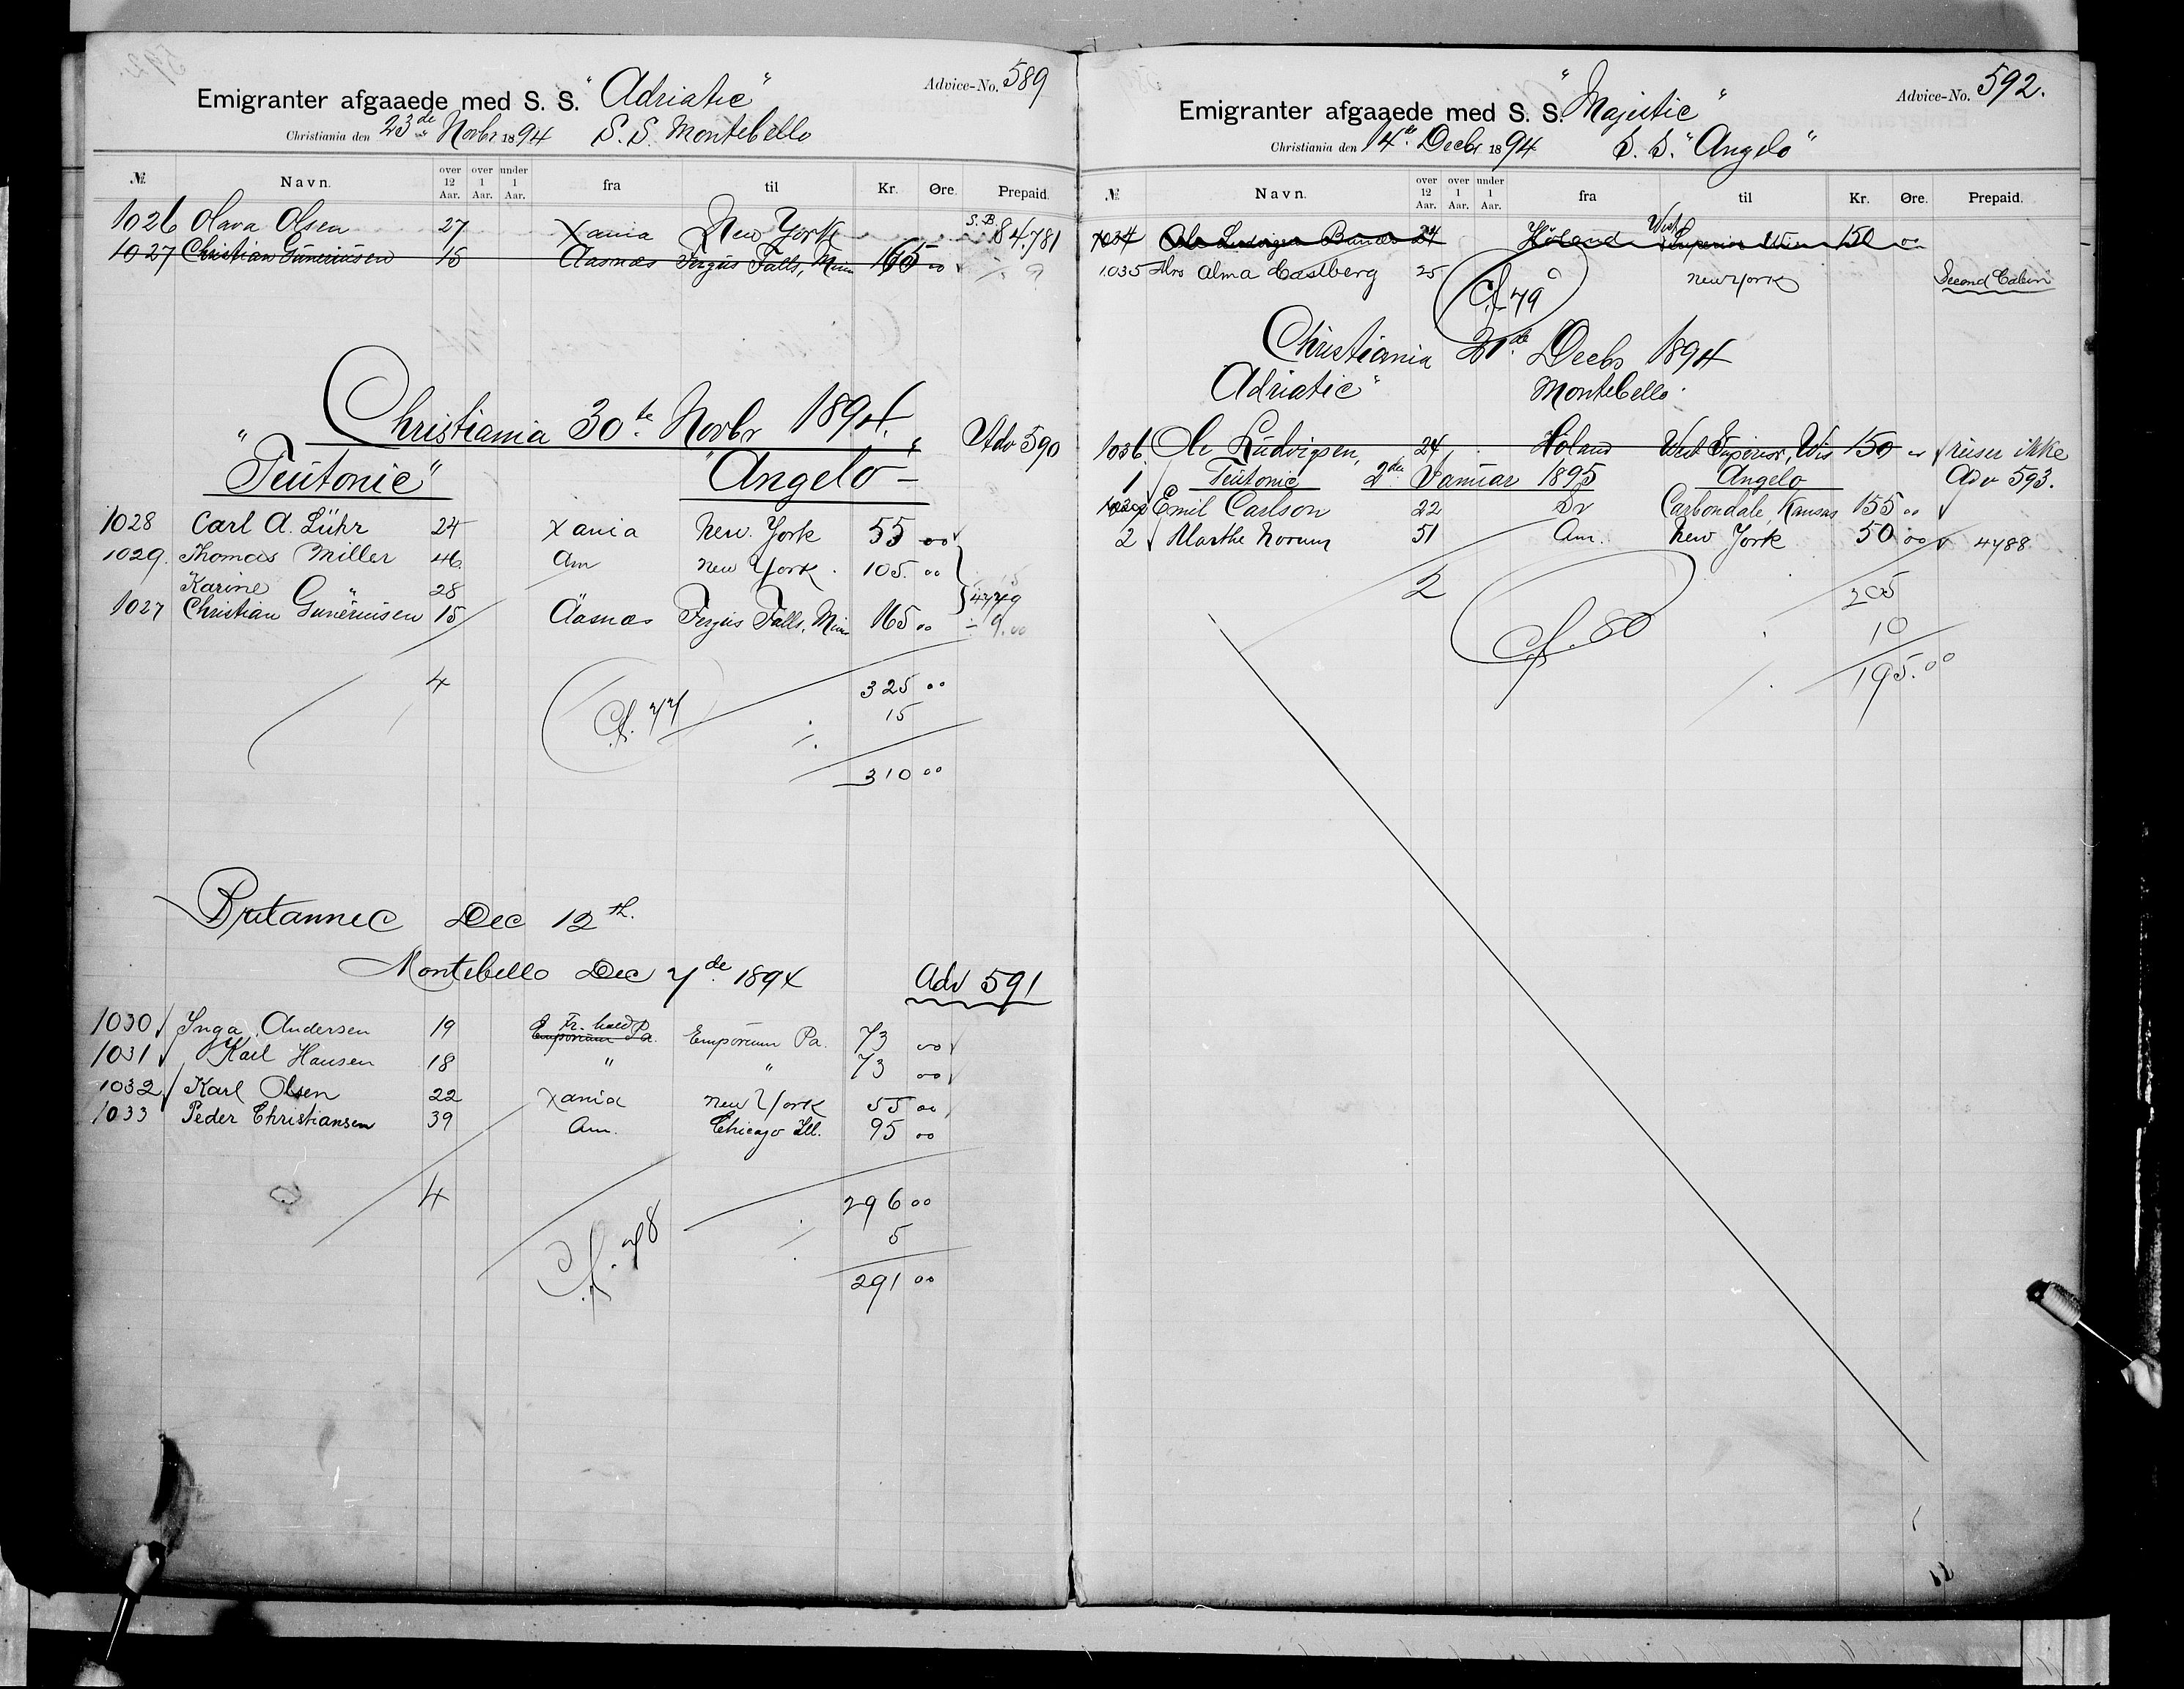 Advice-No. 589
Emigranter afgaaede med S. S. "Adriatic"
Christiania den 23de Novbr 1894 S. S. Montebello
№ Navn. over 12 Aar. over 1 Aar. under 1 Aar. fra til Kr. Øre. Prepaid.
1026 Olava Olsen 27 Xania New York S.B. 84.781
1027 Christian Gunerиusen 15 Aasnæs Fergus Falls, Minn 165 00 ÷ 9
Christiania 30te Novbr 1894. Adv 590
"Teutonic" "Angelo"
1028 Carl A. Lühr 24 Xania New York 55 00
1029. Thomas Miller 46 Am New York. 105. 00
Karine " 28 4779
1027 Christian Guneriusen 15 Aasnæs Fergus Falls, Minn 165 00 ÷ 9.00
4 325 00
Cf. 77 ÷ 15
310 00
Britannic Dec 12th.
Montebello Dec 7de 1894 Adv 591
1030 Inga Andersen 19 Fr. hald Emporium Pa. Emporium Pa. 73 00
1031 Karl Hansen 18 " " 73 00
1032 Karl Olsen 22 Xania New York 55 00
1033 Peder Christiansen 39 Am. Chicago Ill. 95 00
4 296 00
Cf. 78 ÷ 5
291 00
Advice-No. 592.
Emigranter afgaaede med S. S. "Majestic"
Christiania den 14de Decbr 1894 S. S. "Angelo"
№ Navn. over 12 Aar. over 1 Aar. under 1 Aar. fra til Kr. Øre. Prepaid.
1034 Ole Ludvigsen 24 Höland West Superior Wisc 150 00
1035 Mrs Alma Castberg 25 New York Second Cabin
Cf 79
Christiania 21de Decbr 1894
Adriatic" Montebello
1036 Ole Ludvigsen, 24 Holand West Superior, Wis 150 00 reiser ikke
Teutonic 2den Januar 1895 Angelo Adv 593.
1 Emil Carlson 22 Sv Carbondale, Kansas 155 00
2 Marthe Norum 51 Am. New York 50 00 4788
2 205
Cf. 80 ÷ 10
195.00